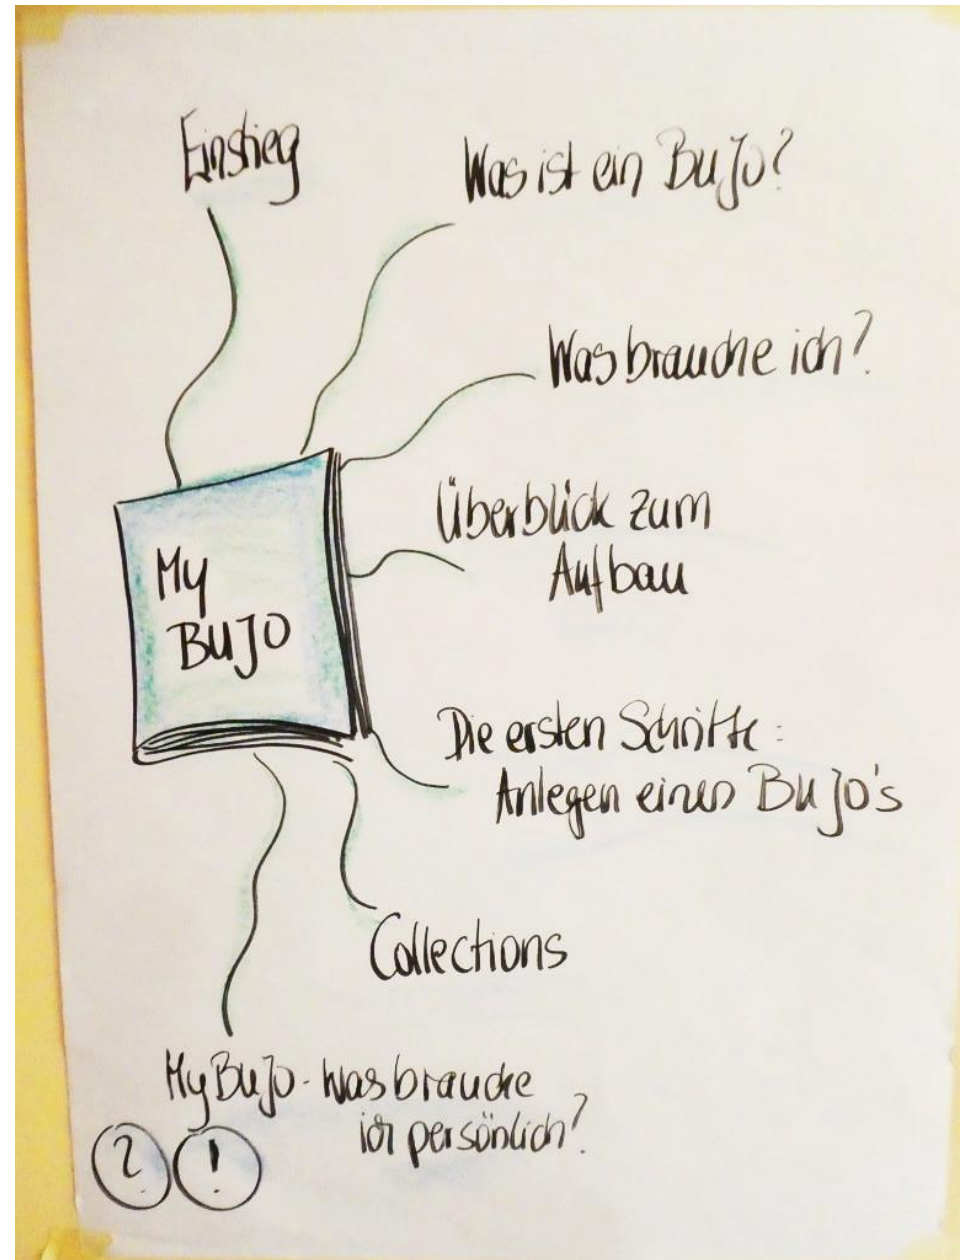 Einstieg
Was ist ein BuJo?
Was brauche ich?
Überblick zum
Aufbau
My
BUJO
Die ersten Schritte:
Anlegen eines BuJo's
Collections
My BuJo - Was brauche
ich persönlich?
? !